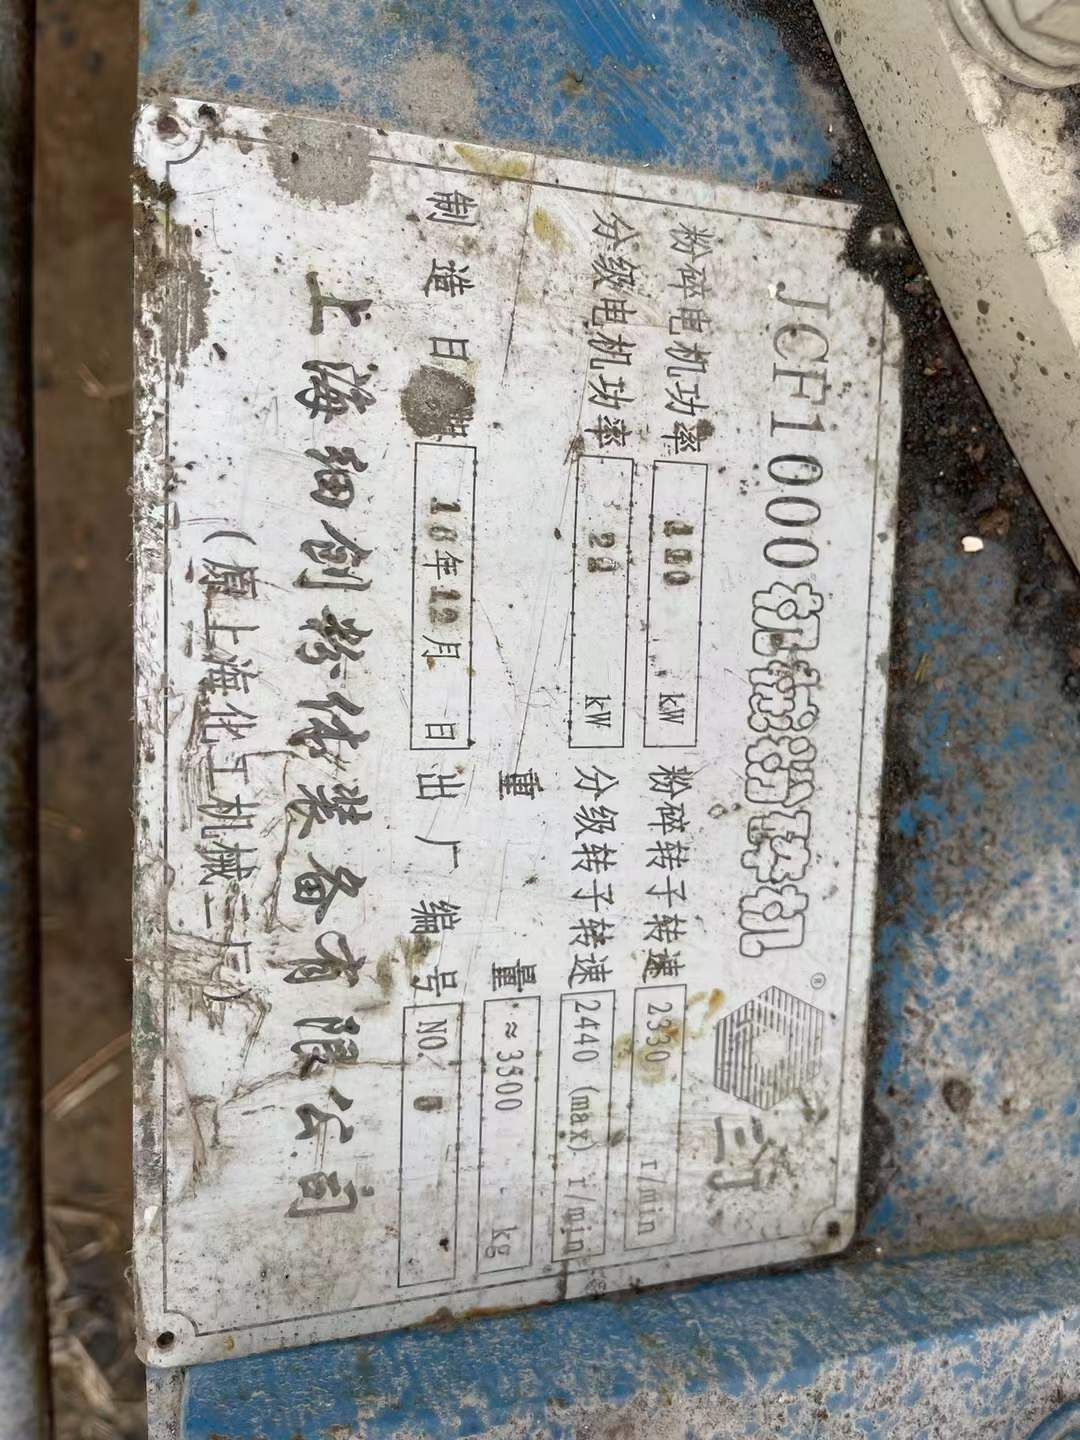 JCF1000机械粉碎机
®
三行
粉碎电机功率 110 kW 粉碎转子转速 2330 r/min
分级电机功率 22 kW 分级转子转速 2440 (max) r/min
重量 ≈3500 kg
制造日期 10年12月 日 出厂编号 NO. 0
上海细创粉体装备有限公司
(原上海化工机械三厂)